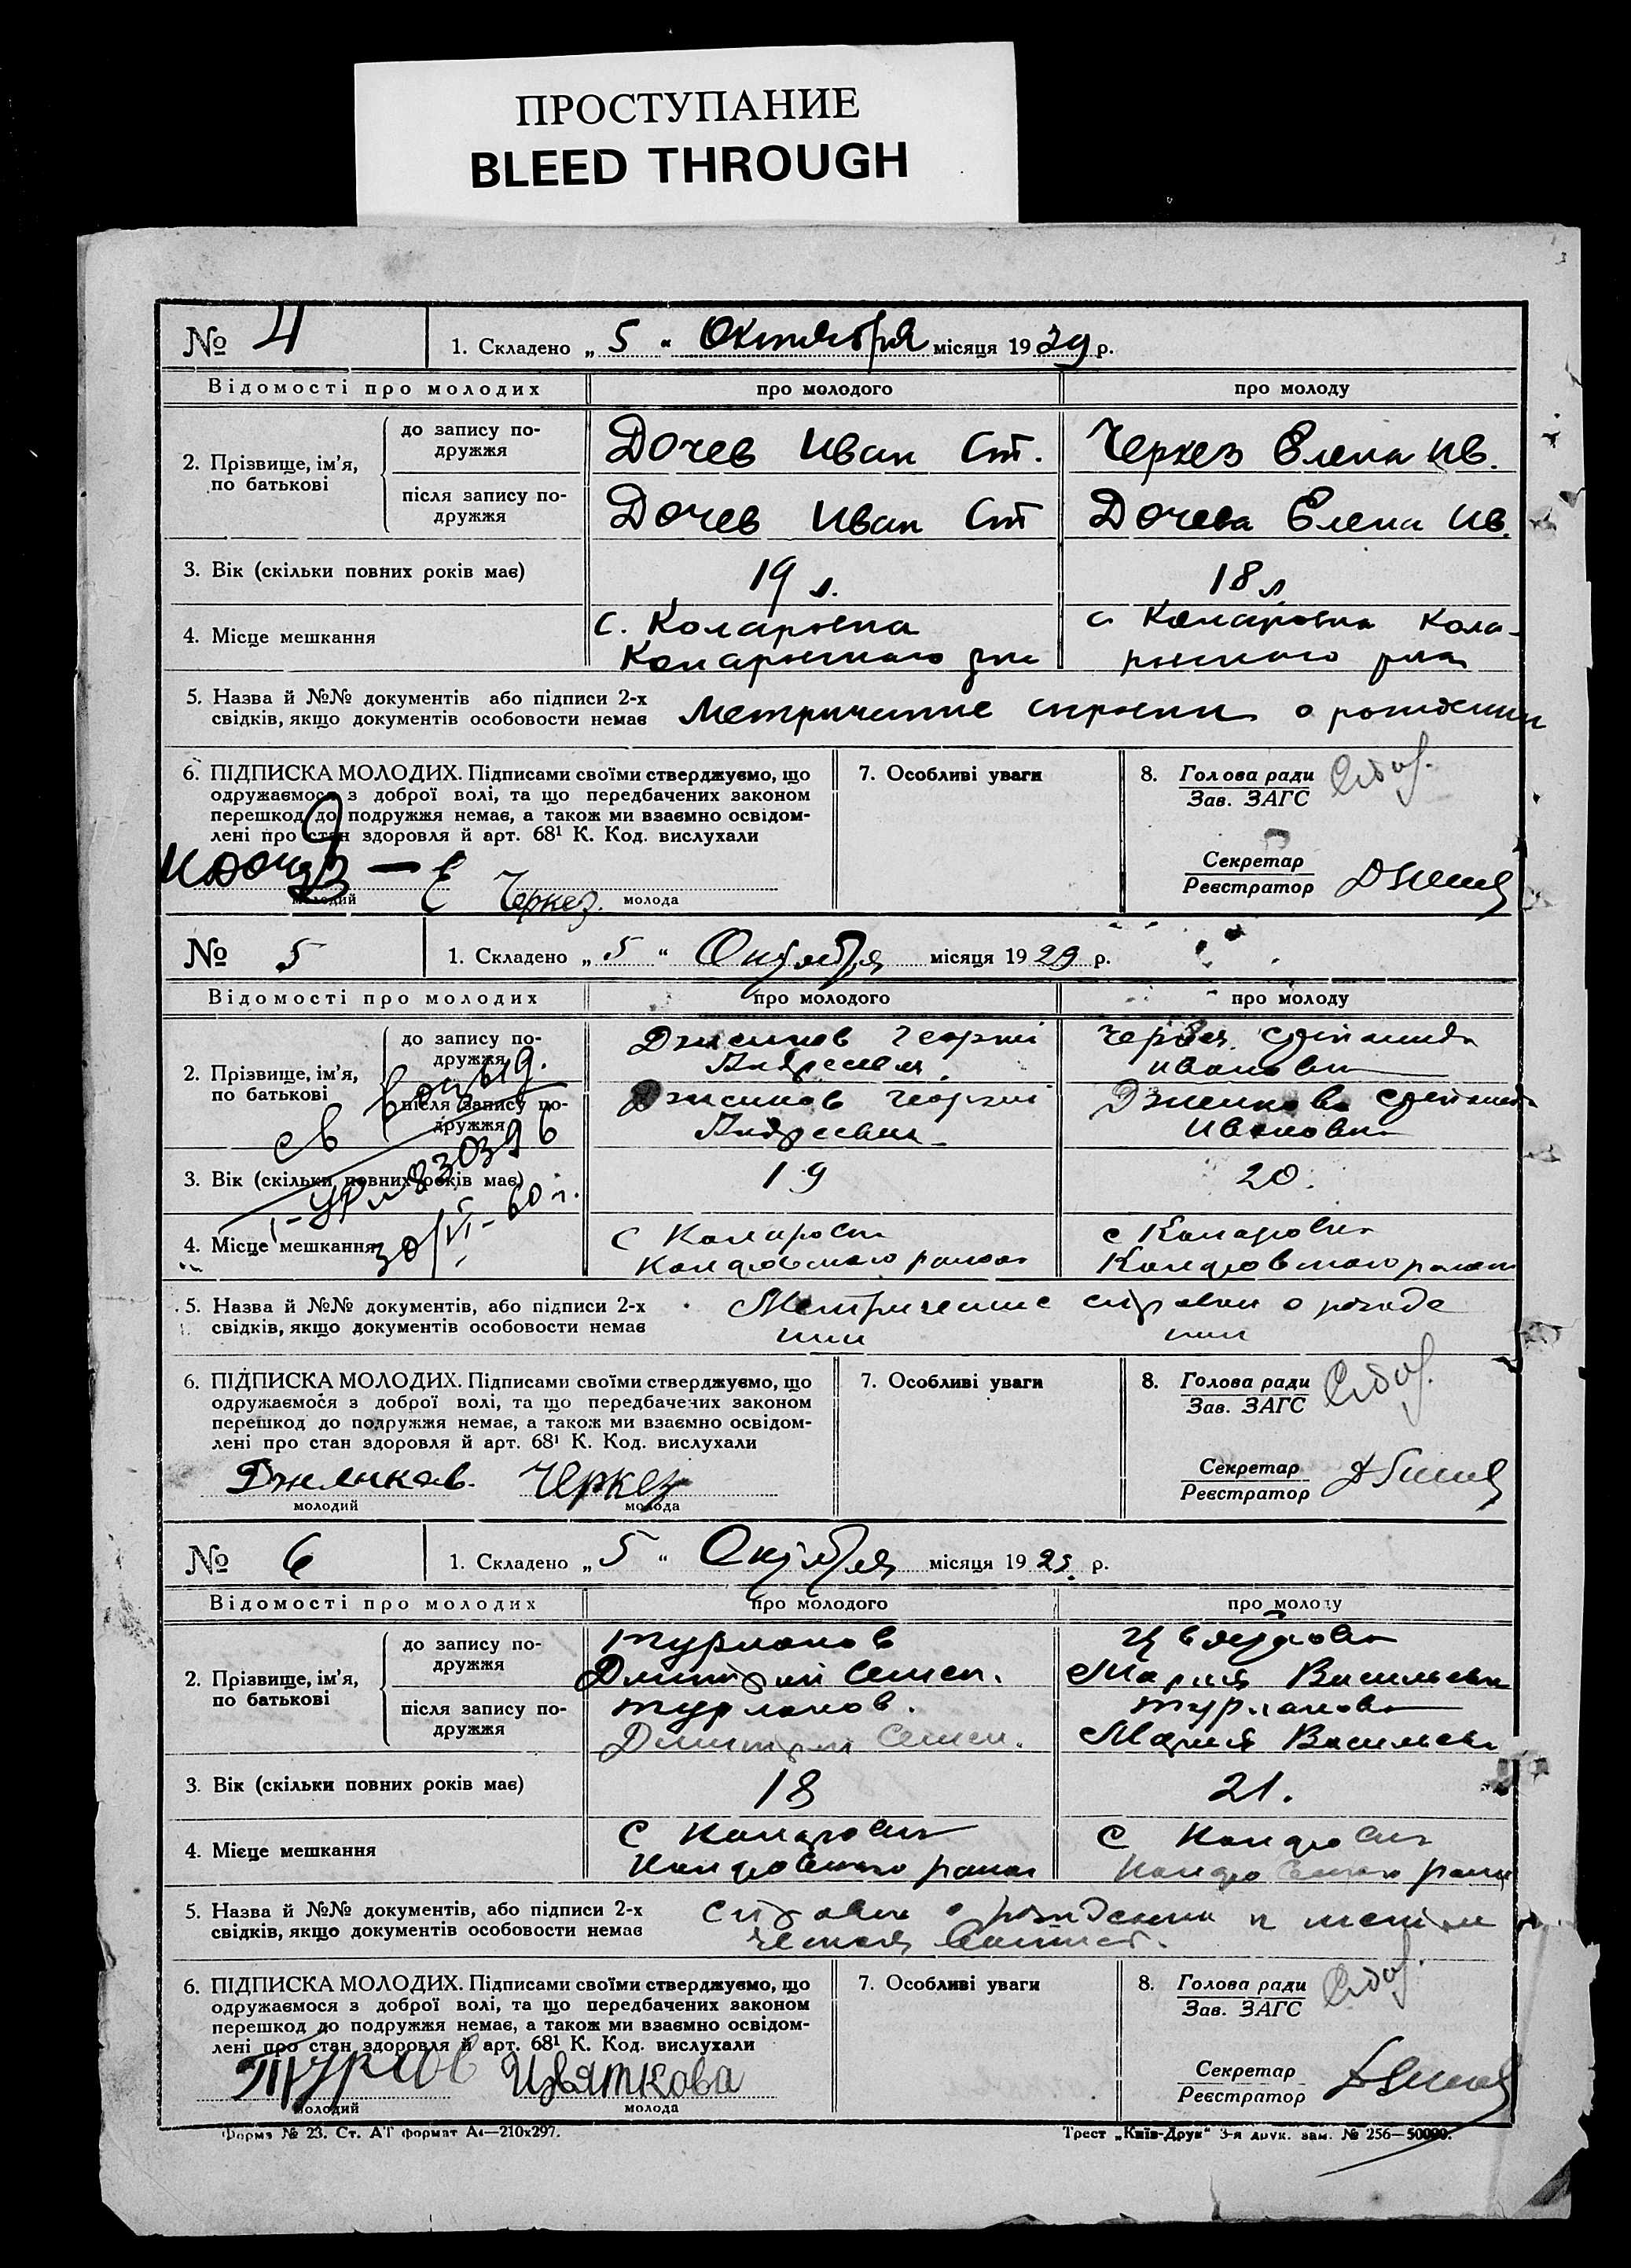 ПРОСТУПАНИЕ
BLEED THROUGH
№ 4 1. Складено „ 5 “ Октября місяця 1929 р.
Відомості про молодих про молодого про молоду
2. Прізвище, ім’я, по батькові
до запису по-
дружжя
Дочев Иван Ст. Черкез Елена Ив.
після запису по-
дружжя
Дочев Иван Ст Дочева Елена Ив.
3. Вік (скільки повних років має) 19 л. 18 л
4. Місце мешкання
с. Коларовка с. Коларовка Кола-
Коларовского р-на ровского р-на
5. Назва й №№ документів або підписи 2-х
свідків, якщо документів особовости немає
Метрические справки о рождении
6. ПІДПИСКА МОЛОДИХ. Підписами своїми стверджуємо, що
одружаємося з доброї волі, та що передбачених законом
перешкод до подружжя немає, а також ми взаємно освідом-
лені про стан здоровля й арт. 68¹ К. Код. вислухали
Е Черкез.
молодий молода
7. Особливі уваги
8. Голова ради
Зав. ЗАГС
Секретар
Реєстратор
№ 5 1. Складено „ 5 “ Октября місяця 1929 р.
Відомості про молодих про молодого про молоду
2. Прізвище, ім’я, по батькові
до запису по-
дружжя
Георгий
Андреевич Ивановна
після запису по-
дружжя
Георгий
Андреевич Ивановна
3. Вік (скільки повних років має) 19 20.
30/VI-60 г.
4. Місце мешкання
с Коларовка с Коларовка
Коларовского района Коларовского района
5. Назва й №№ документів, або підписи 2-х
свідків, якщо документів особовости немає
Метрические справки о рожде
нии нии
6. ПІДПИСКА МОЛОДИХ. Підписами своїми стверджуємо, що
одружаємося з доброї волі, та що передбачених законом
перешкод до подружжя немає, а також ми взаємно освідом-
лені про стан здоровля й арт. 68¹ К. Код. вислухали
Дженков. Черкез
молодий молода
7. Особливі уваги
8. Голова ради
Зав. ЗАГС
Секретар
Реєстратор
№ 6 1. Складено „ 5 “ Октября місяця 1929. р.
Відомості про молодих про молодого про молоду
2. Прізвище, ім’я, по батькові
до запису по-
дружжя
Турланов Цвяткова
Дмитрий Семен. Мария Васильевн
після запису по-
дружжя
Турланов. Турланова
Дмитрий Семен. Мария Васильевн
3. Вік (скільки повних років має) 18 21.
4. Місце мешкання
с Коларовка с Коларовка
Коларовского района Коларовского района
5. Назва й №№ документів, або підписи 2-х
свідків, якщо документів особовости немає
справка о рождении и метри
ческая
6. ПІДПИСКА МОЛОДИХ. Підписами своїми стверджуємо, що
одружаємося з доброї волі, та що передбачених законом
перешкод до подружжя немає, а також ми взаємно освідом-
лені про стан здоровля й арт. 68¹ К. Код. вислухали
Цвяткова
молодий молода
7. Особливі уваги
8. Голова ради
Зав. ЗАГС
Секретар
Реєстратор
Форма № 23. Ст. АТ формат А4—210х297. Трест „Київ-Друк“ 3-я друк. зам. № 256—50000.